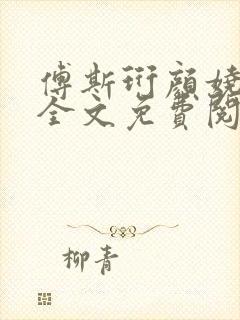 傅斯珩顏嬈
全文免費閱
柳青